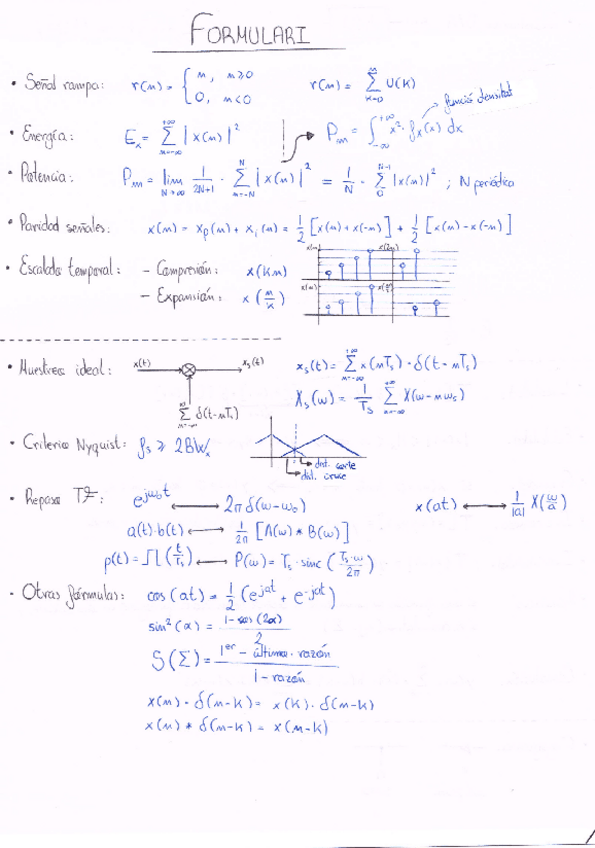 FORMULARI
• Señal rampa: r(n) = { n, n≥0 ; 0, n<0    r(n) = Σ_{k=0}^{n} U(k)
función densitat
• Energía: E_x = Σ_{n=-∞}^{+∞} |x(n)|²    P_m = ∫_{-∞}^{+∞} x² · f_x(x) dx
• Potencia: P_m = lim_{N→∞} 1/(2N+1) · Σ_{n=-N}^{N} |x(n)|² = 1/N · Σ_{0}^{N-1} |x(n)|² ; N periódica
• Paridad señales: x(n) = x_p(n) + x_i(n) = 1/2 [x(n)+x(-n)] + 1/2 [x(n)-x(-n)]
• Escalado temporal: – Compresión: x(kn)    x(n) x(2n)
– Expansión: x(n/k)    x(n) x(n/2)
• Muestreo ideal: x(t) ⊗ x_s(t)    x_s(t) = Σ_{n=-∞}^{+∞} x(nT_s) · δ(t-nT_s)
Σ_{n=-∞}^{+∞} δ(t-nT_s)    X_s(ω) = 1/T_s Σ_{n=-∞}^{+∞} X(ω-nω_s)
• Criterio Nyquist: f_s ≥ 2BW_x    dist. corte
dist. cruce
• Repaso TF: e^{jω₀t} ⟷ 2πδ(ω-ω₀)    x(at) ⟷ 1/|a| X(ω/a)
a(t)·b(t) ⟷ 1/2π [A(ω) * B(ω)]
p(t) = Π(t/T_s) ⟷ P(ω) = T_s · sinc(T_s·ω/2π)
• Otras fórmulas: cos(at) = 1/2 (e^{jat} + e^{-jat})
sin²(α) = (1-cos(2α))/2
S(Σ) = (1^{er} - última · razón)/(1 - razón)
x(n) · δ(n-k) = x(k) · δ(n-k)
x(n) * δ(n-k) = x(n-k)